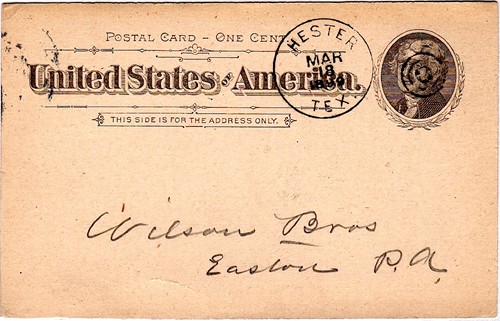 POSTAL CARD – ONE CENT
United States of America.
THIS SIDE IS FOR THE ADDRESS ONLY.
HESTER
MAR
18
TEX.
Wilson Bros
Easton P.A.